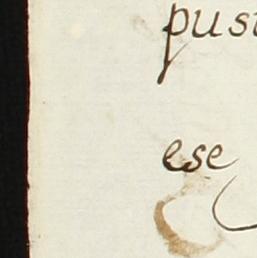 pus
ese